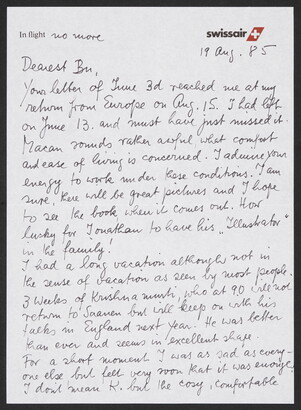 In flight no more
swissair
19 Aug. 85
Dearest Bu,
Your letter of June 3d reached me at my
return from Europe on Aug. 15. I had left
on June 13. and must have just missed it.
Macan sounds rather awful what comfort
and ease of living is concerned. I admire your
energy to work under these conditions. I am
sure, there will be great pictures and I hope
to see the book when it comes out. How
lucky for Jonathan to have his "Illustrator"
in the family!
I had a long vacation although not in
the sense of vacation as seen by most people.
3 weeks of Krishnamurti, who at 90 will not
return to Saanen but will keep on with his
talks in England next year. He was better
than ever and seems in excellent shape.
For a short moment I was as sad as every-
one else but felt very soon that it was enough.
I don't mean K. but the cosy, comfortable